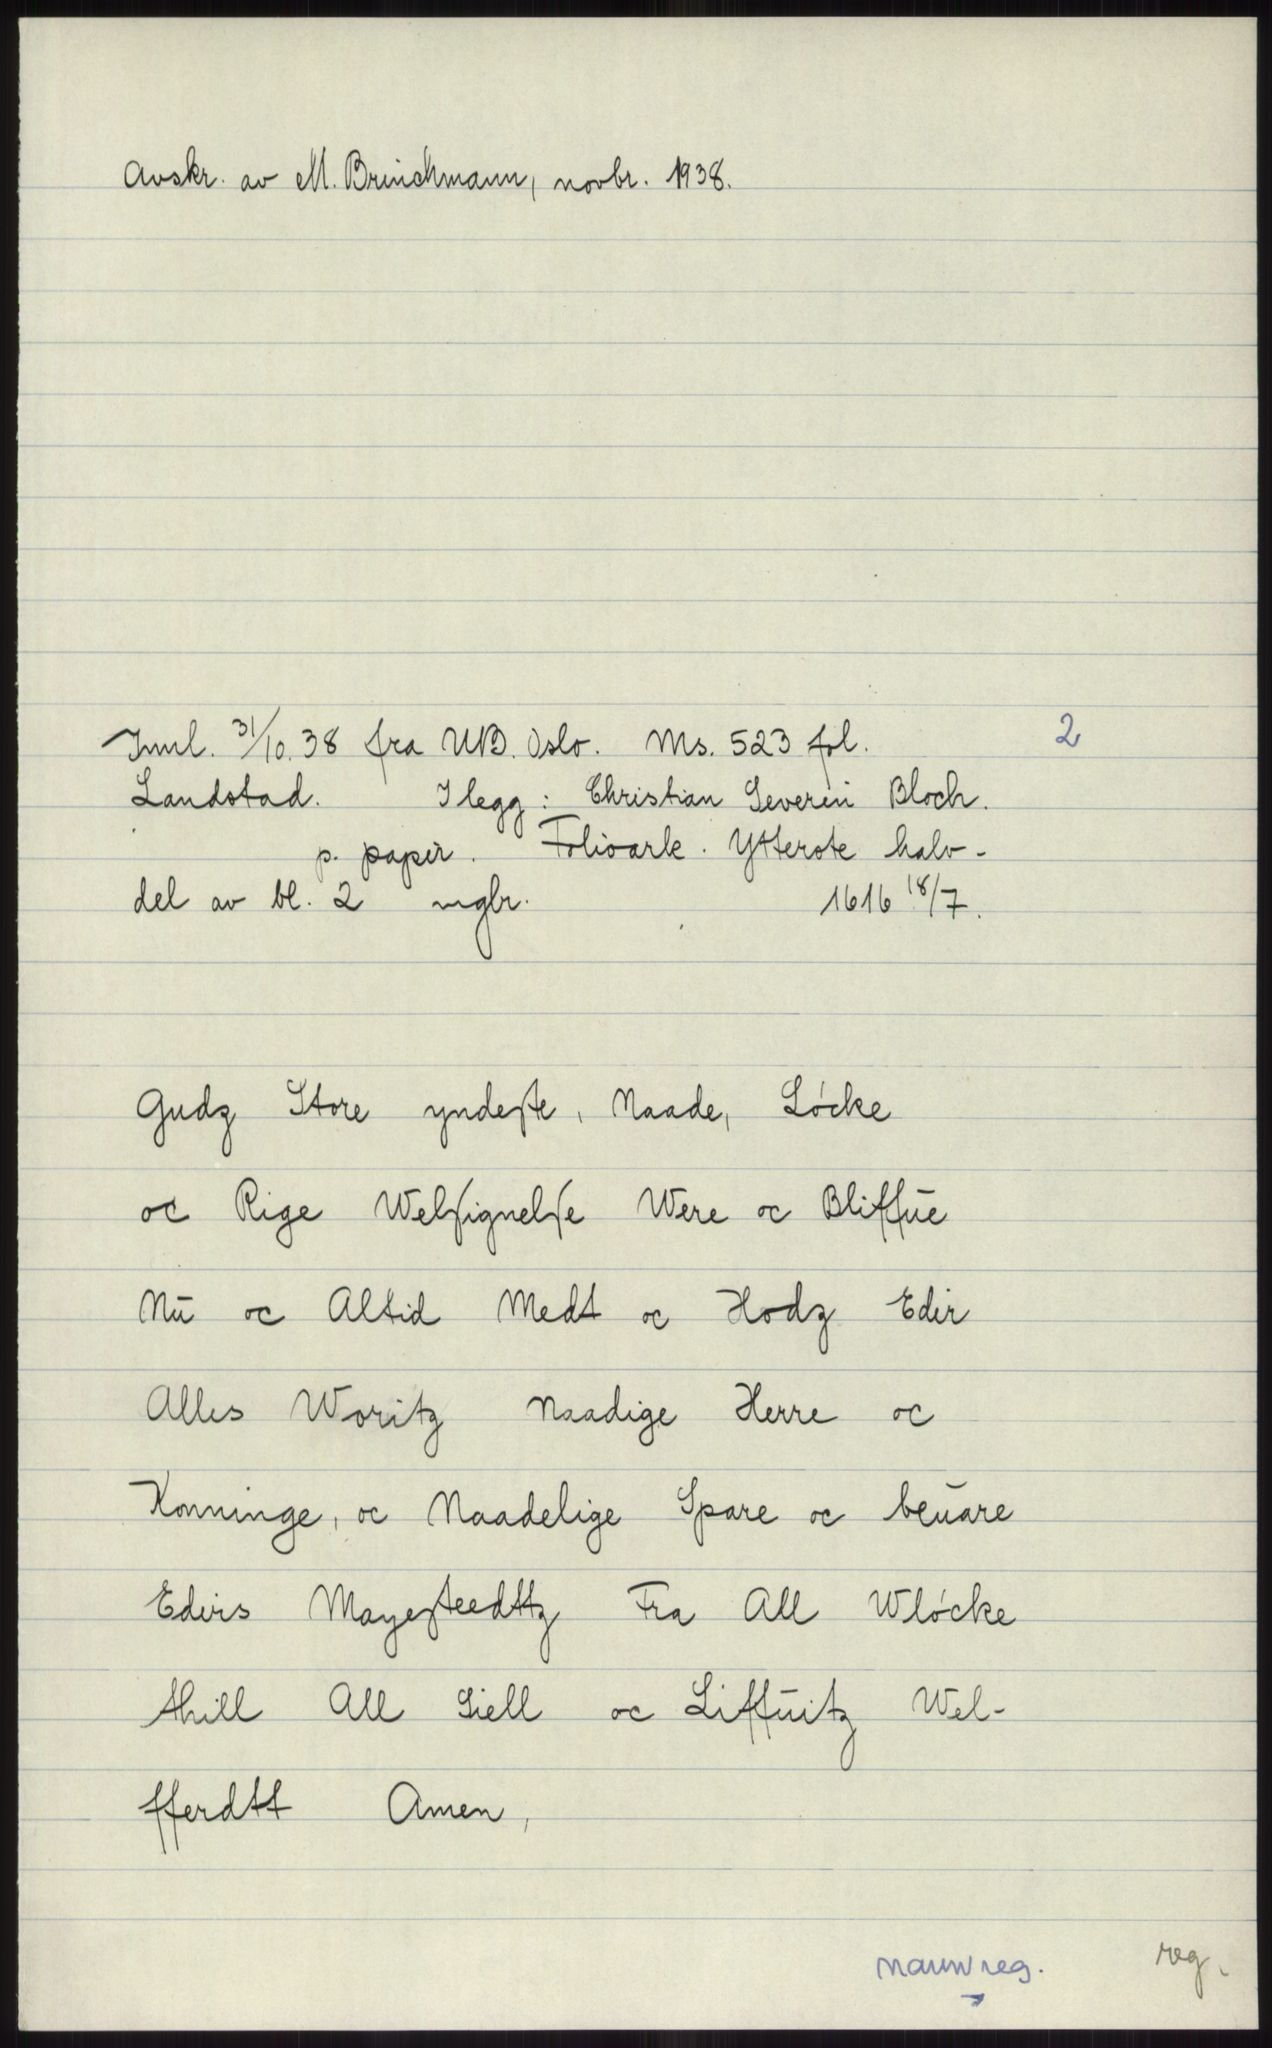 Avskr. av M. Brinchmann, novbr. 1938.
Innl. 31/10. 38 fra UB. Oslo. Ms. 523 fol. 2
Landstad. I legg: Christian Severin Bloch.
p. papir. Folioark. Ytterste halv-
del av bl. 2 mglr. 1616 18/7.
Gudz Store yndeſte, Naade, Løcke
oc Rige Welſignelſe Were oc Bliffūe
Nū oc Altid Medt oc Hodz Edir
Alles Woritz Naadige Herre oc
Konninge, oc Naadelige Spare oc beūare
Edirs Mayeſteedttz Fra All Wløcke
thill All Siell oc Liffūitz Wel-
fferdtt Amen,
navnreg.
reg.